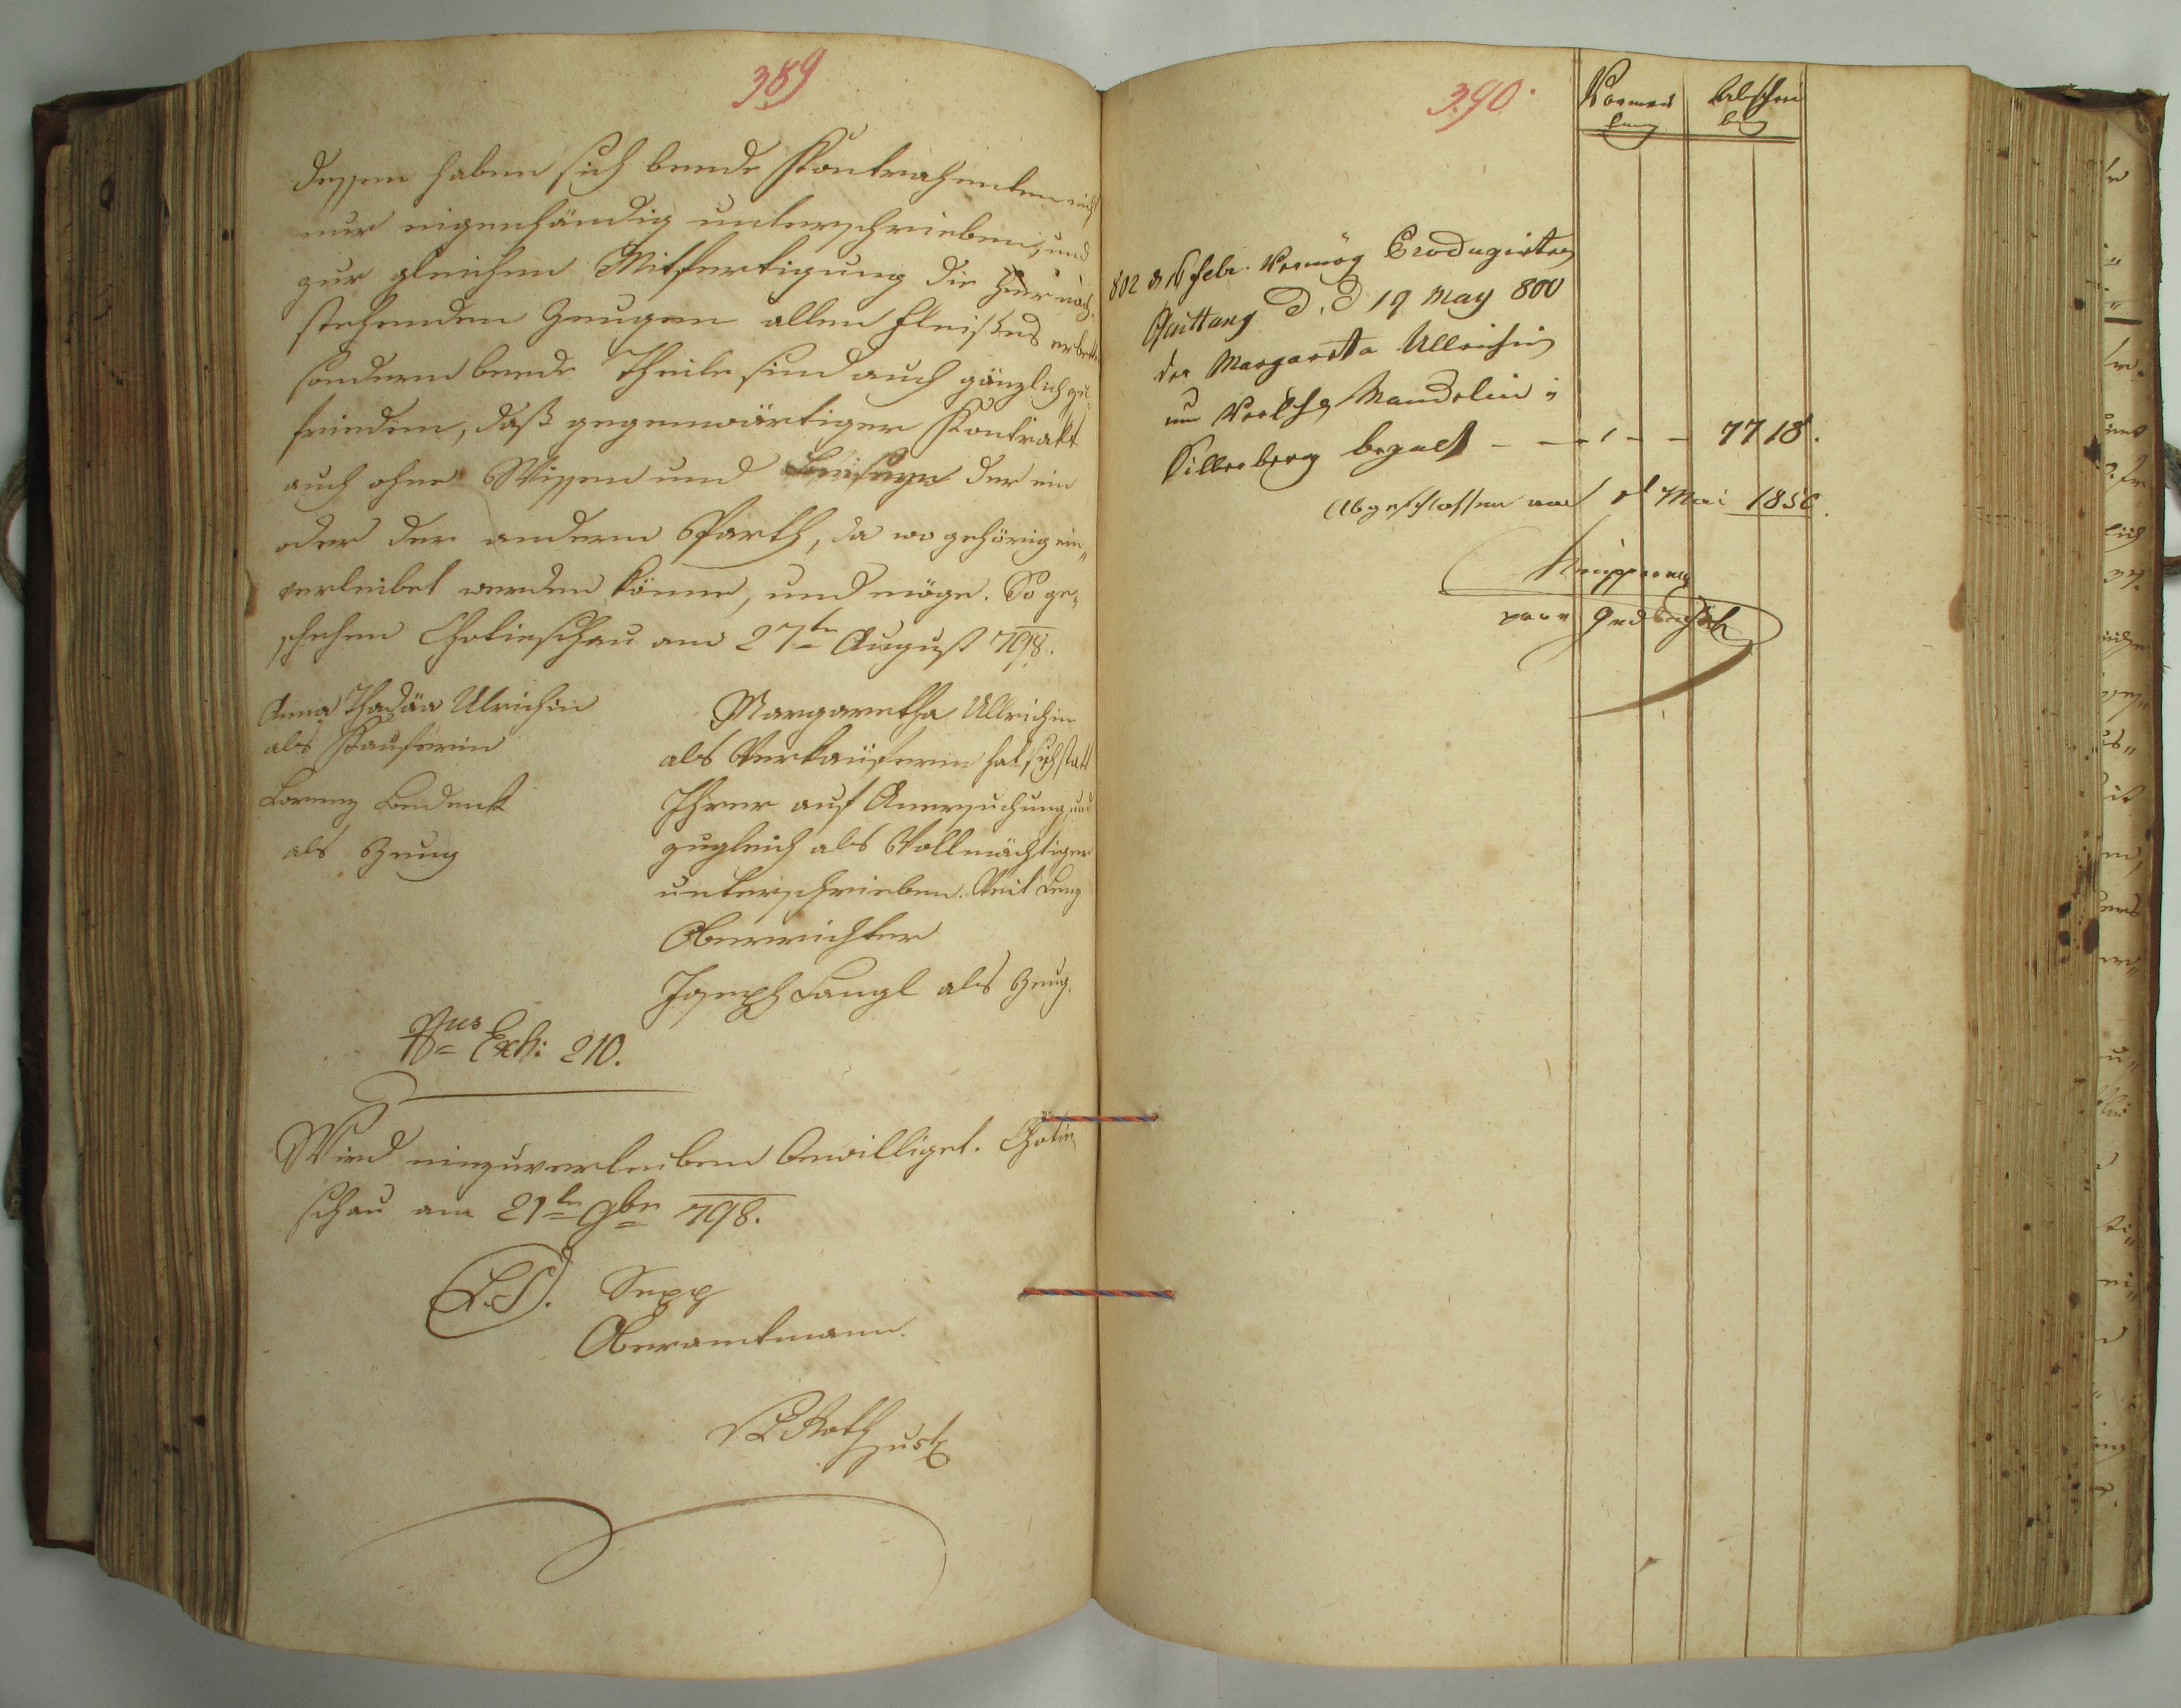 389
dessen haben sich beede Kontrahenten nicht
nur eigenhändig unterschrieben, und
zur gleichen Mitfertigung die hier nach
stehenden Zeugen allen Fleißes erbetten
sondern beede Theile sind auch gänzlich zu-
frieden, daß gegenwärtiger Kontrakt
auch ohne Wissen und Beiseyn der ein
oder der andern Parth, da wo gehörig ein„
verleibet werden könne, und möge. So ge„
schehen Chotieschau am 27ten August 798.
Anna Thadäa Ulrichin
als Kauferin
Lorenz
als Zeug
Margaretha Ullrichin
als Verkäuferin hat sich statt
Ihrer auf Anersuchung, und
zugleich als Vollmächtiger
unterschrieben. Veit Lenz
Oberrichter
Joseph Langl als Zeug.
Exh: 210.
Wird einzuverleiben bewilliget. Chotie„
schau am 21ten 9ber 798.
(L.S). Sepp
Oberamtmann.
Roth
390.
Vormer
kung
Abschrei
bung
802 d 16 febr. Vermög Produzirter
Quittung d. d 19 May 800
der Margareta Ullrichin
um
bezalt - - - - - 7718.
Abgeschlossen am Mai 1856.